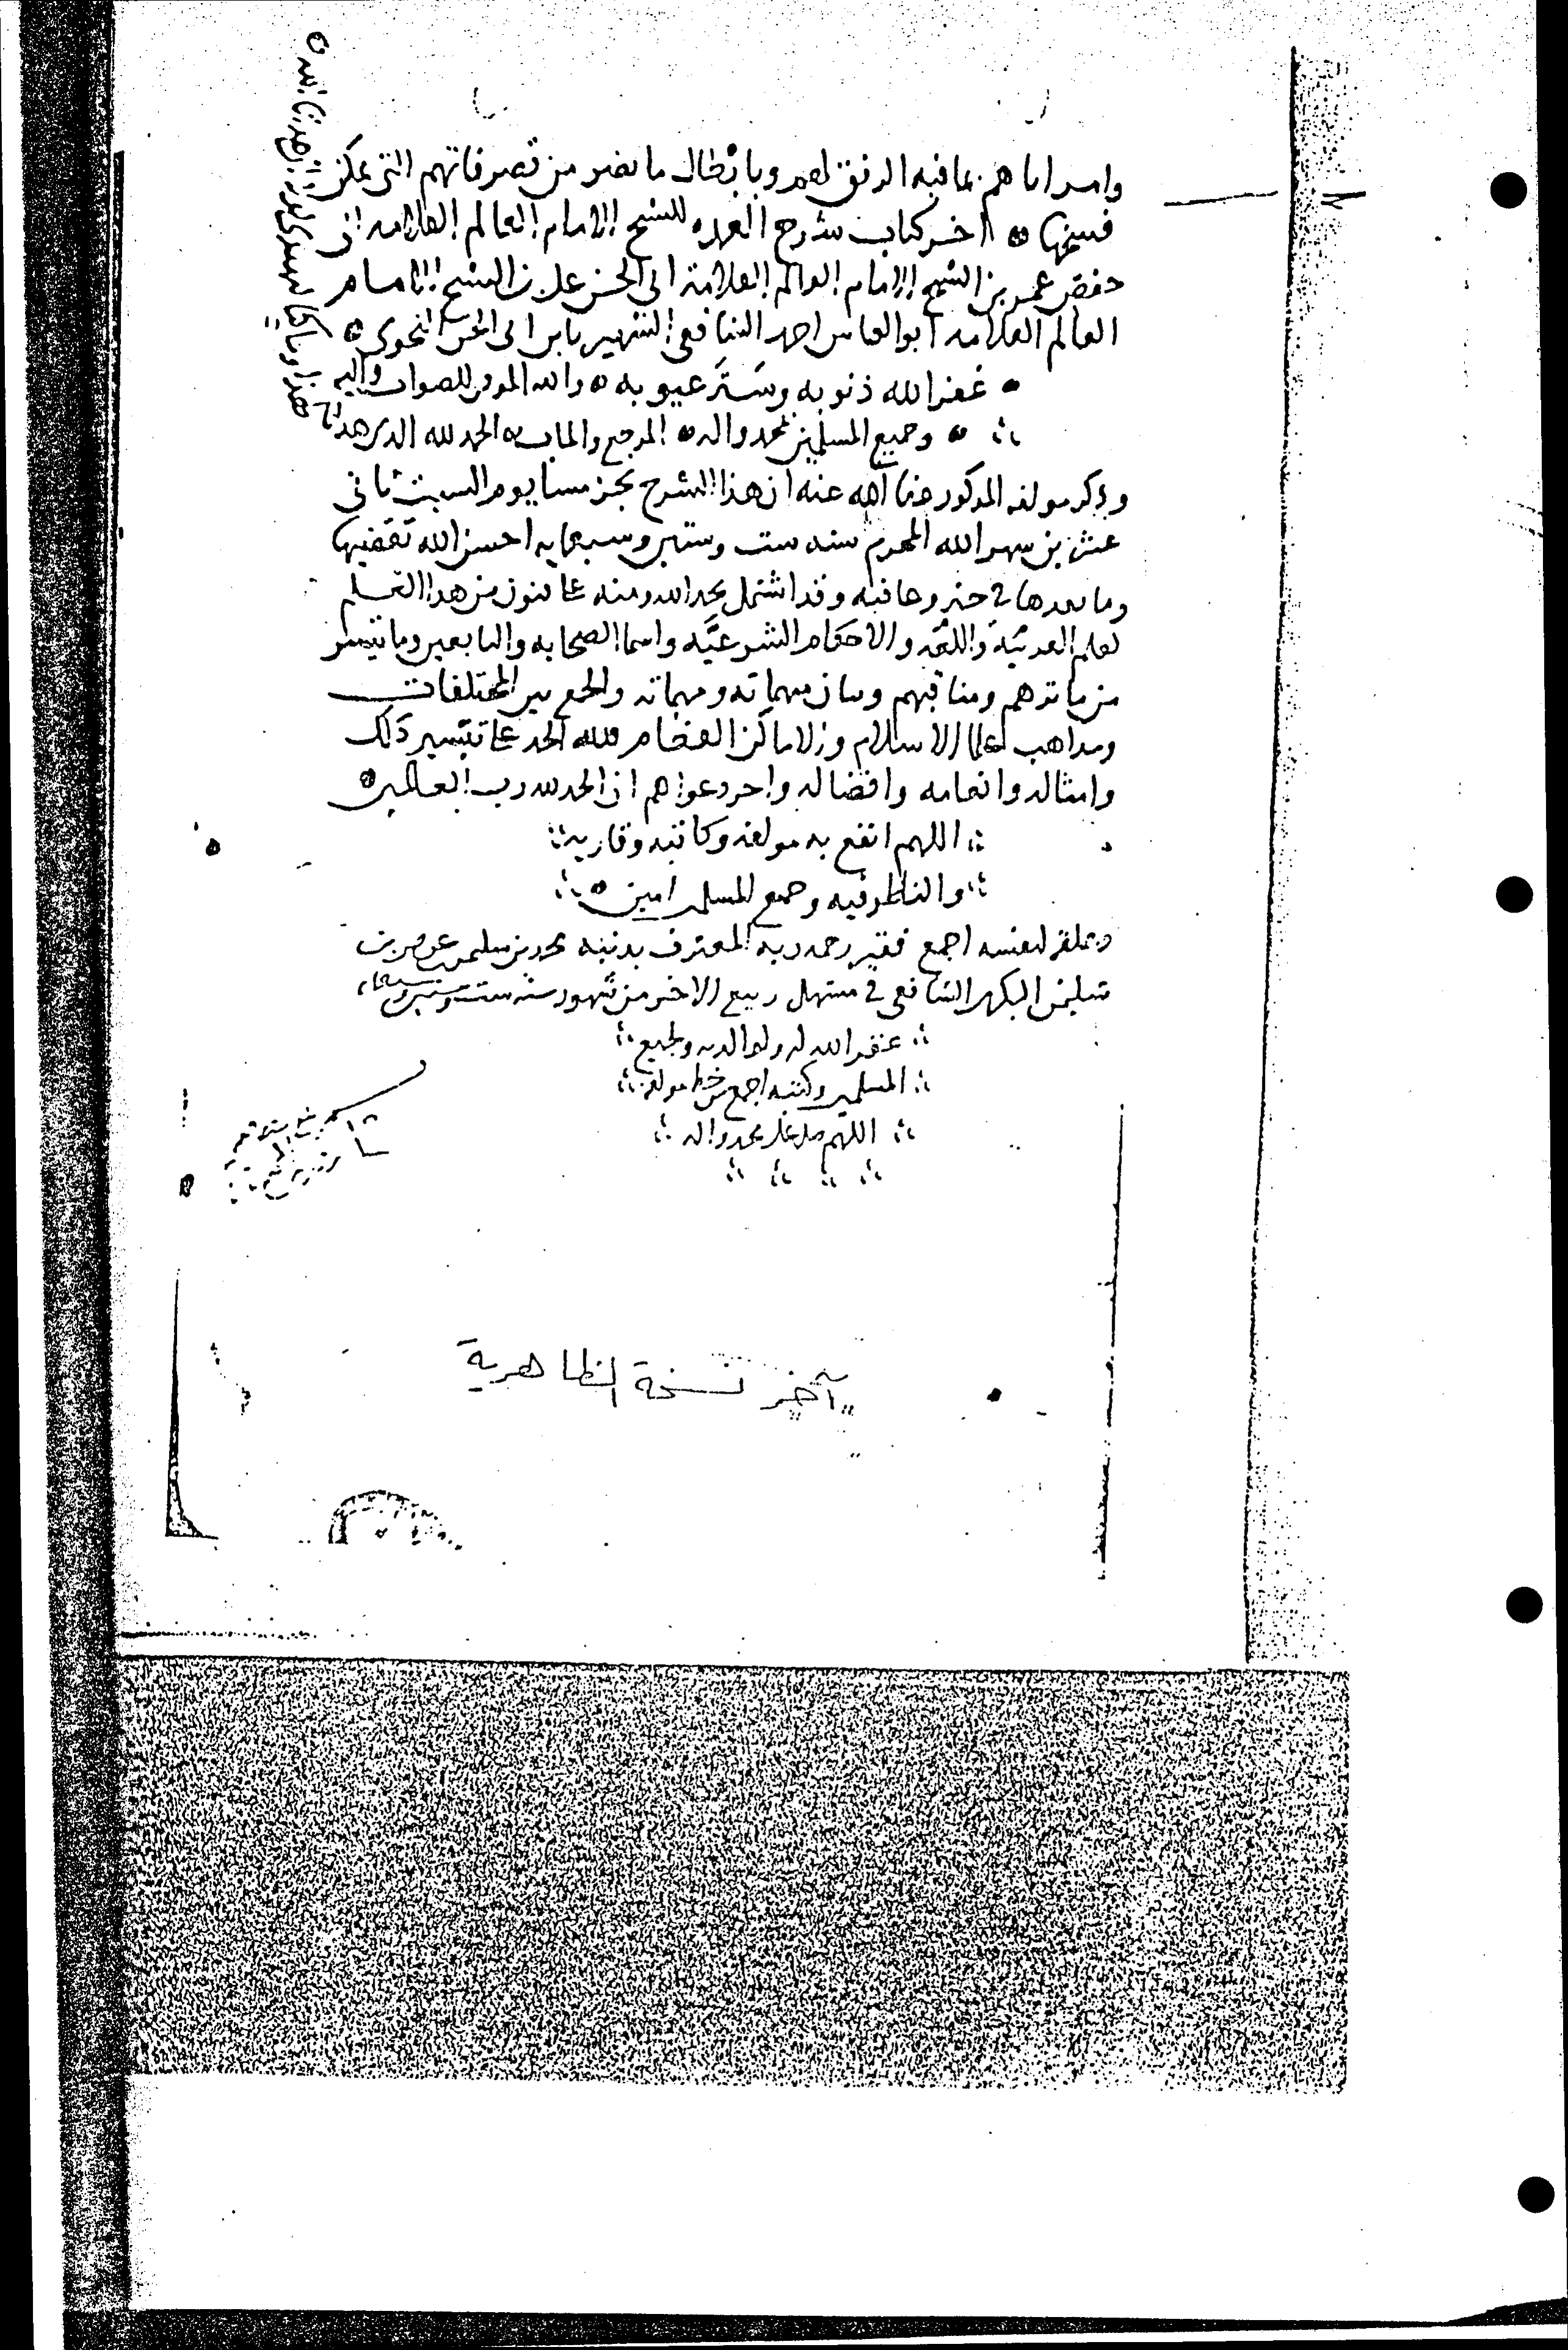 وامره اياهم بما فيه الرفق لهم وبابطال ما يضر من تصرفاتهم التي يمكن
فسخها اخر كتاب شرح العمده للشيخ الامام العالم العلامه ابي
حفص عمر بن الشيخ الامام العالم العلامة ابي الحسن علي بن الشيخ الامام
العالم العلامه ابو العباس احمد الشافعي الشهير بابن ابي الحسن النحوي
غفر الله ذنوبه وستر عيوبه والله الموفق للصواب واليه
وجميع المسلمين بمحمد واله المرجع والماب الحمد لله الدي هدانا
لهذا وما كنا لنهتدي لولا ان هدانا الله
وذكر مولفه المذكور رضي الله عنه ان هذا الشرح نجز مسا يوم السبت ثاني
عشرين شهر الله المحرم سنه ست وستين وسبعمايه احسن الله تقضيها
وما بعدها في خير وعافيه وقد اشتمل بحمد الله ومنه على فنون من هدا العلم
لعلم العربيّة واللغه والاحكام الشرعيّه واسما الصحابه والتابعين وما تيسر
من ماثرهم ومناقبهم وبيان مبهماته ومهماته والجمع بين المختلفات
ومداهب علما الاسلام والاماكن العظام فلله الحمد على تيسير ذلك
وامثاله وانعامه وافضاله واخر دعواهم ان الحمد لله رب العالمين
اللهم انفع به مولفه وكاتبه وقاريه
والناظر فيه وجميع المسلمين امين
وعلقه لنفسه اجمع فقير رحمه ربه المعترف بذنبه محمد بن سليمن بن
سليمن البكري الشافعي في مستهل ربيع الاخر من شهور سنه ست وستين وسبعمايه
غفر الله له ولوالديه ولجميع
المسلمين وكتبه اجمع من خط مولفه
اللهم صل على محمد واله
آخر نسخة الظاهرية